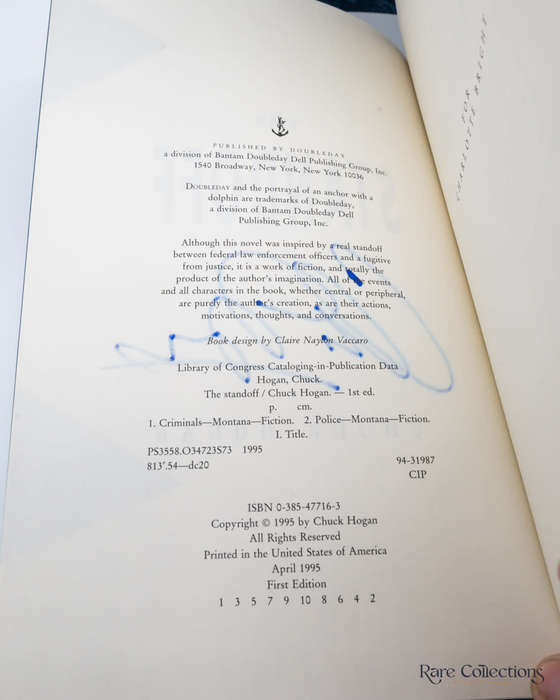 PUBLISHED BY DOUBLEDAY
a division of Bantam Doubleday Dell Publishing Group, Inc.
1540 Broadway, New York, New York 10036
DOUBLEDAY and the portrayal of an anchor with a
dolphin are trademarks of Doubleday,
a division of Bantam Doubleday Dell
Publishing Group, Inc.
Although this novel was inspired by a real standoff
between federal law enforcement officers and a fugitive
from justice, it is a work of fiction, and totally the
product of the author's imagination. All of the events
and all characters in the book, whether central or peripheral,
are purely the author's creation, as are their actions,
motivations, thoughts, and conversations.
Book design by Claire Naylon Vaccaro
Library of Congress Cataloging-in-Publication Data
Hogan, Chuck.
The standoff / Chuck Hogan. — 1st ed.
p. cm.
1. Criminals—Montana—Fiction. 2. Police—Montana—Fiction.
I. Title.
PS3558.O34723S73 1995
813'.54—dc20
94-31987
CIP
ISBN 0-385-47716-3
Copyright © 1995 by Chuck Hogan
All Rights Reserved
Printed in the United States of America
April 1995
First Edition
1 3 5 7 9 10 8 6 4 2
FOR
CHARLOTTE BRIGHT
Rare Collections